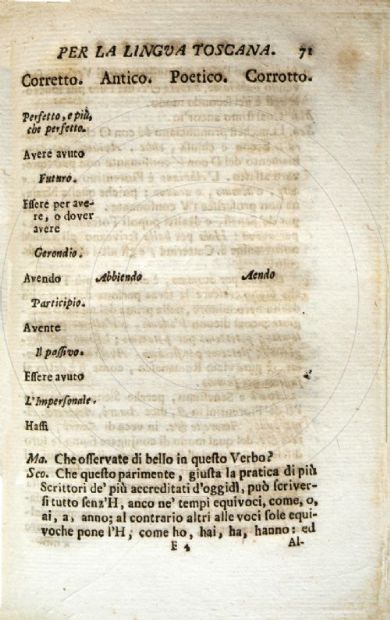 PER LA LINGVA TOSCANA. 71
Corretto. Antico. Poetico. Corrotto.
Perfetto, e più,
che perfetto.
Avere avuto
Futuro.
Essere per ave-
re, o dover
avere
Gerondio.
Avendo Abbiendo Aendo
Participio.
Avente
Il passivo.
Essere avuto
L'Impersonale.
Hassi
Ma. Che osservate di bello in questo Verbo?
Sco. Che questo parimente, giusta la pratica di più
Scrittori de' più accreditati d'oggidì, può scriver-
si tutto senz'H, anco ne' tempi equivoci, come, o,
ai, a, anno; al contrario altri alle voci sole equi-
voche pone l'H, come ho, hai, ha, hanno: ed
E 4 Al-